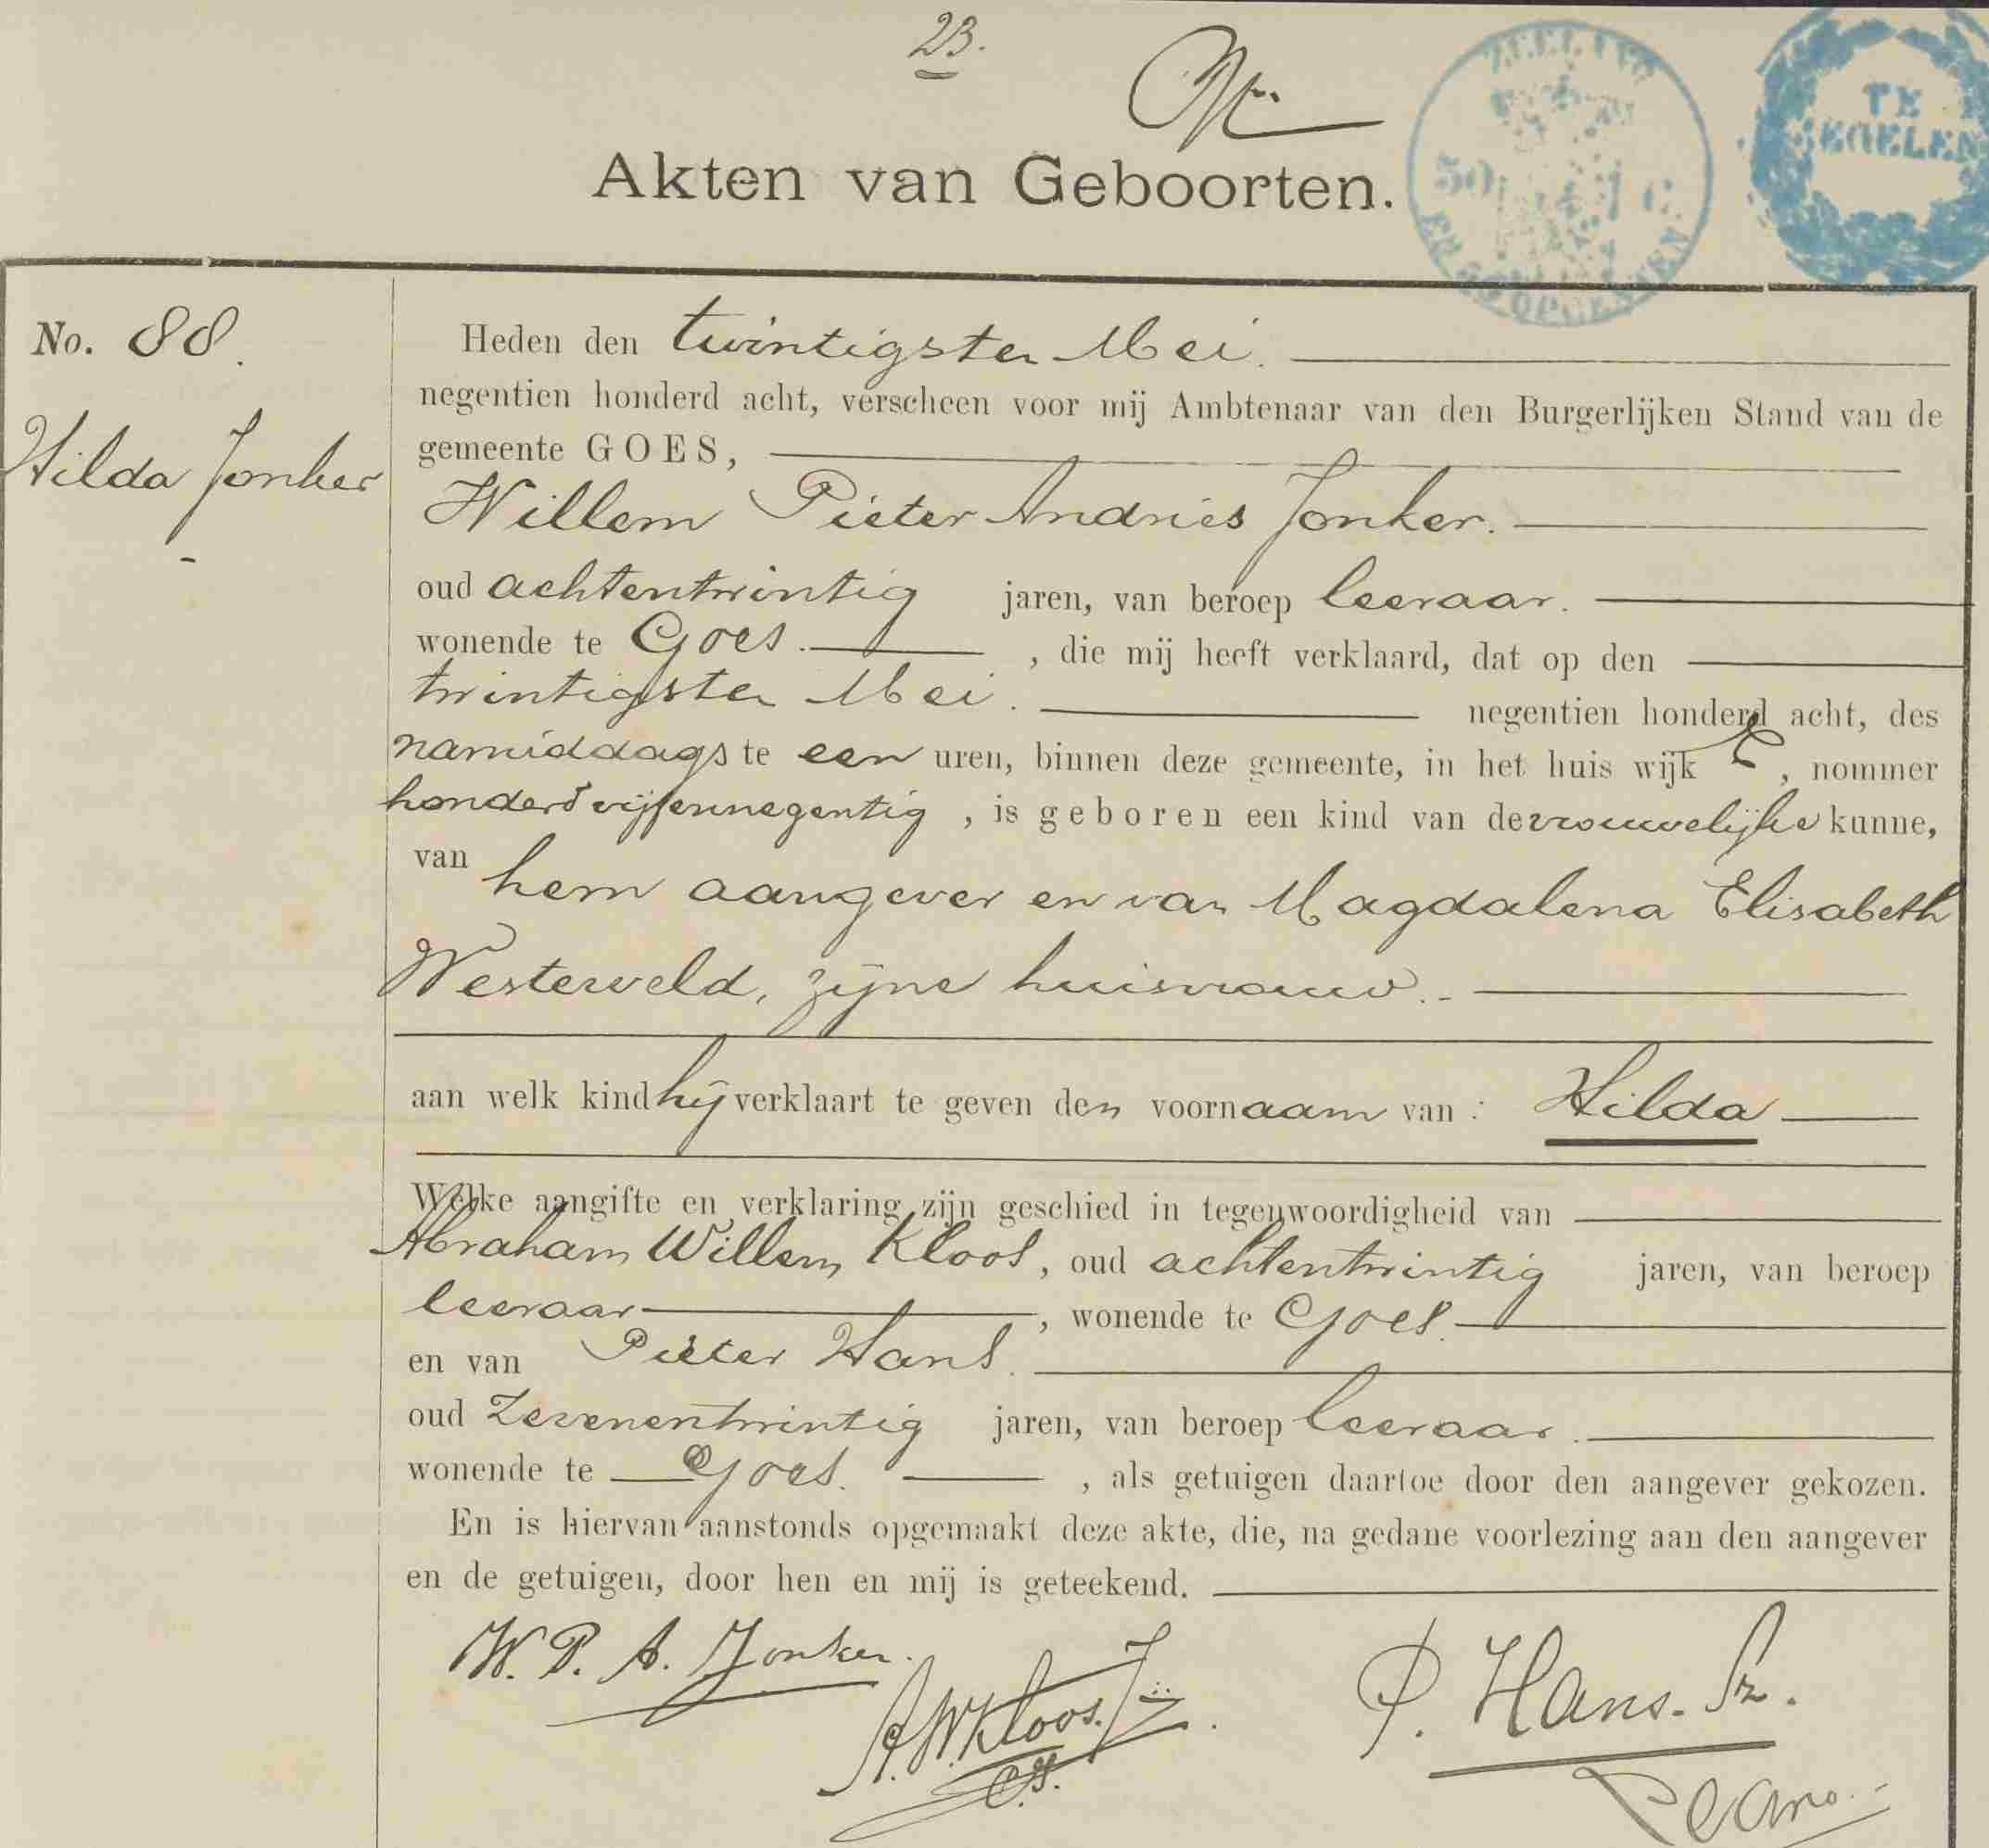 23.
Akten van Geboorten.
ZEELAND
50
EN OPCENTEN
TE
ZEGELEN
No. 88.
Hilda Jonker
Heden den twintigsten Mei.
negentien honderd acht, verscheen voor mij Ambtenaar van den Burgerlijken Stand van de
gemeente GOES,
Willem Pieter Andries Jonker.
oud achtentwintig jaren, van beroep leeraar.
wonende te Goes. , die mij heeft verklaard, dat op den
twintigsten Mei. negentien honderd acht, des
namiddags te een uren, binnen deze gemeente, in het huis wijk , nommer
honderd vijfennegentig , is geboren een kind van de vrouwelijke kunne,
van hem aangever en van Magdalena Elisabeth
Westerveld, zijne huisvrouw.
aan welk kind hij verklaart te geven den voornaam van : Hilda
Welke aangifte en verklaring zijn geschied in tegenwoordigheid van
Abraham Willem Kloos, oud achtentwintig jaren, van beroep
leeraar , wonende te Goes.
en van Pieter Hans.
oud zevenentwintig jaren, van beroep leeraar.
wonende te Goes. , als getuigen daartoe door den aangever gekozen.
En is hiervan aanstonds opgemaakt deze akte, die, na gedane voorlezing aan den aangever
en de getuigen, door hen en mij is geteekend.
W. P. A. Jonker.
A. W. Kloos. Jz.
P. Hans. Sz.